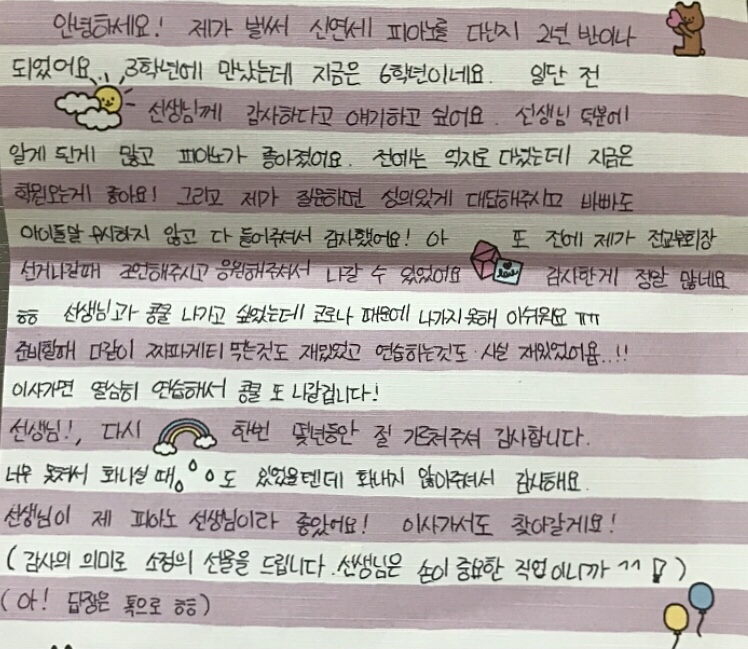 안녕하세요! 제가 벌써 신연세 피아노를 다닌지 2년 반이나
되었어요 3학년에 만났는데 지금은 6학년이네요. 일단 전
선생님께 감사하다고 얘기하고 싶어요. 선생님 덕분에
알게 된게 많고 피아노가 좋아졌어요. 전에는 억지로 다녔는데 지금은
학원오는게 좋아요! 그리고 제가 질문하면 성의있게 대답해주시고 바빠도
아이들말 무시하지 않고 다 들어주셔서 감사했어요! 아 또 전에 제가 전교부회장
선거나갈때 조언해주시고 응원해주셔서 나갈 수 있었어요 감사한게 정말 많네요
ㅎㅎ 선생님과 콩쿨 나가고 싶었는데 코로나 때문에 나가지 못해 아쉬워요 ㅠㅠ
준비할때 다같이 짜파게티 먹는것도 재밌었고 연습하는것도 사실 재밌었어욥..!!
이사가면 열심히 연습해서 콩쿨 또 나갈겁니다!
선생님!, 다시 한번 몇년동안 절 가르쳐주셔 감사합니다.
너무 못쳐서 화나실 때도 있었을텐데 화내지 않아주셔서 감사해요.
선생님이 제 피아노 선생님이라 좋았어요! 이사가서도 찾아갈게요!
(감사의 의미로 소정의 선물을 드립니다. 선생님은 손이 중요한 직업이니까 ^^)
(아! 답장은 톡으로 ㅎㅎ)